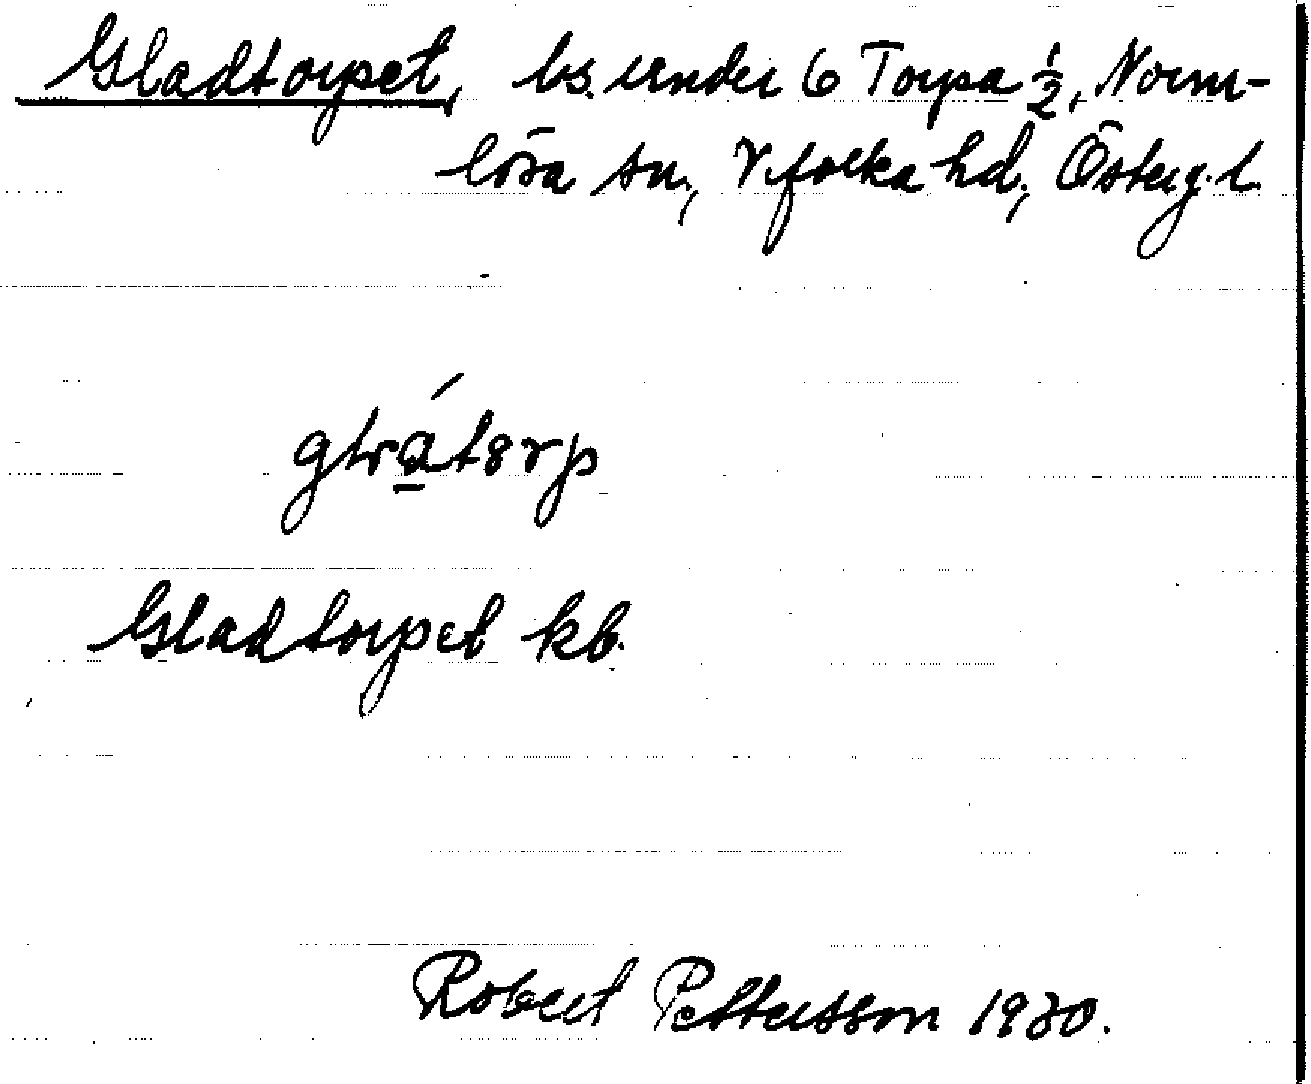 Gladtorpet, bs. under 6 Torpa ½, Norm-
lösa sn., Vifolka hd., Österg. l.
Gladtorpet kb.
Robert Pettersson 1930.